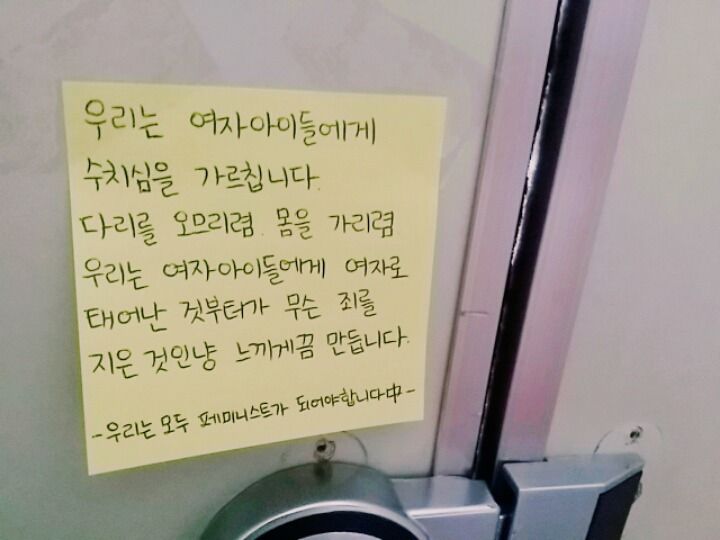 우리는 여자아이들에게
수치심을 가르칩니다.
다리를 오므리렴. 몸을 가리렴
우리는 여자아이들에게 여자로
태어난 것부터가 무슨 죄를
지은 것인냥 느끼게끔 만듭니다.
-우리는 모두 페미니스트가 되어야합니다中-